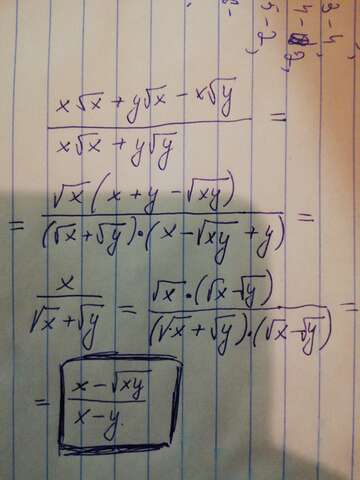 3-4,
4-2,
5-2,
x√x + y√x - x√y / x√x + y√y =
= √x (x + y - √xy) / (√x + √y)·(x - √xy + y) =
x / √x + √y = √x·(√x - √y) / (√x + √y)·(√x - √y) =
= x - √xy / x - y.